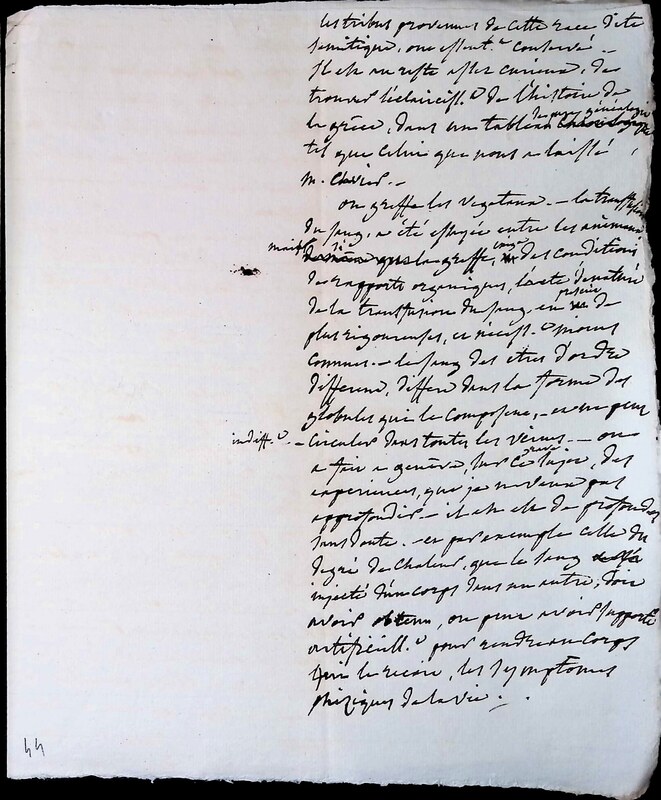 les tribus provenues de cette race d'ité
semitique, ont essent.t conservé. –
Il est au reste assez curieux, de
trouver l'éclairciss.t de l'histoire de
la grèce, dans un tableau généalogie
tel que celui que nous a laissé
m. Clavier. –
on greffe les vegetaux. – la transfusion
du sang, a été essayée entre les animaux
mais si la greffe, exige des conditions
des rapports organiques,
de la transfusion du sang, en de
plus rigoureuses, et nécess.t moins
connues. – le sang des etres d'ordre
different, differe dans la forme des
globules qui le composent, – et ne peut
indiff.t – circuler dans toutes les veines. – on
a fait a genève, sur ce grave sujet, des
experiences, que je ne veux pas
approfondir – il en est de profondes
sans doute. – et par exemple celle du
degré de chaleur, que le sang
injecté d'un corps dans un autre, doit
avoir obtenu, ou peut avoir supporté
artificiell.t pour rendre au corps
qui le reçoit, les symptomes
phiziques de la vie. –
44